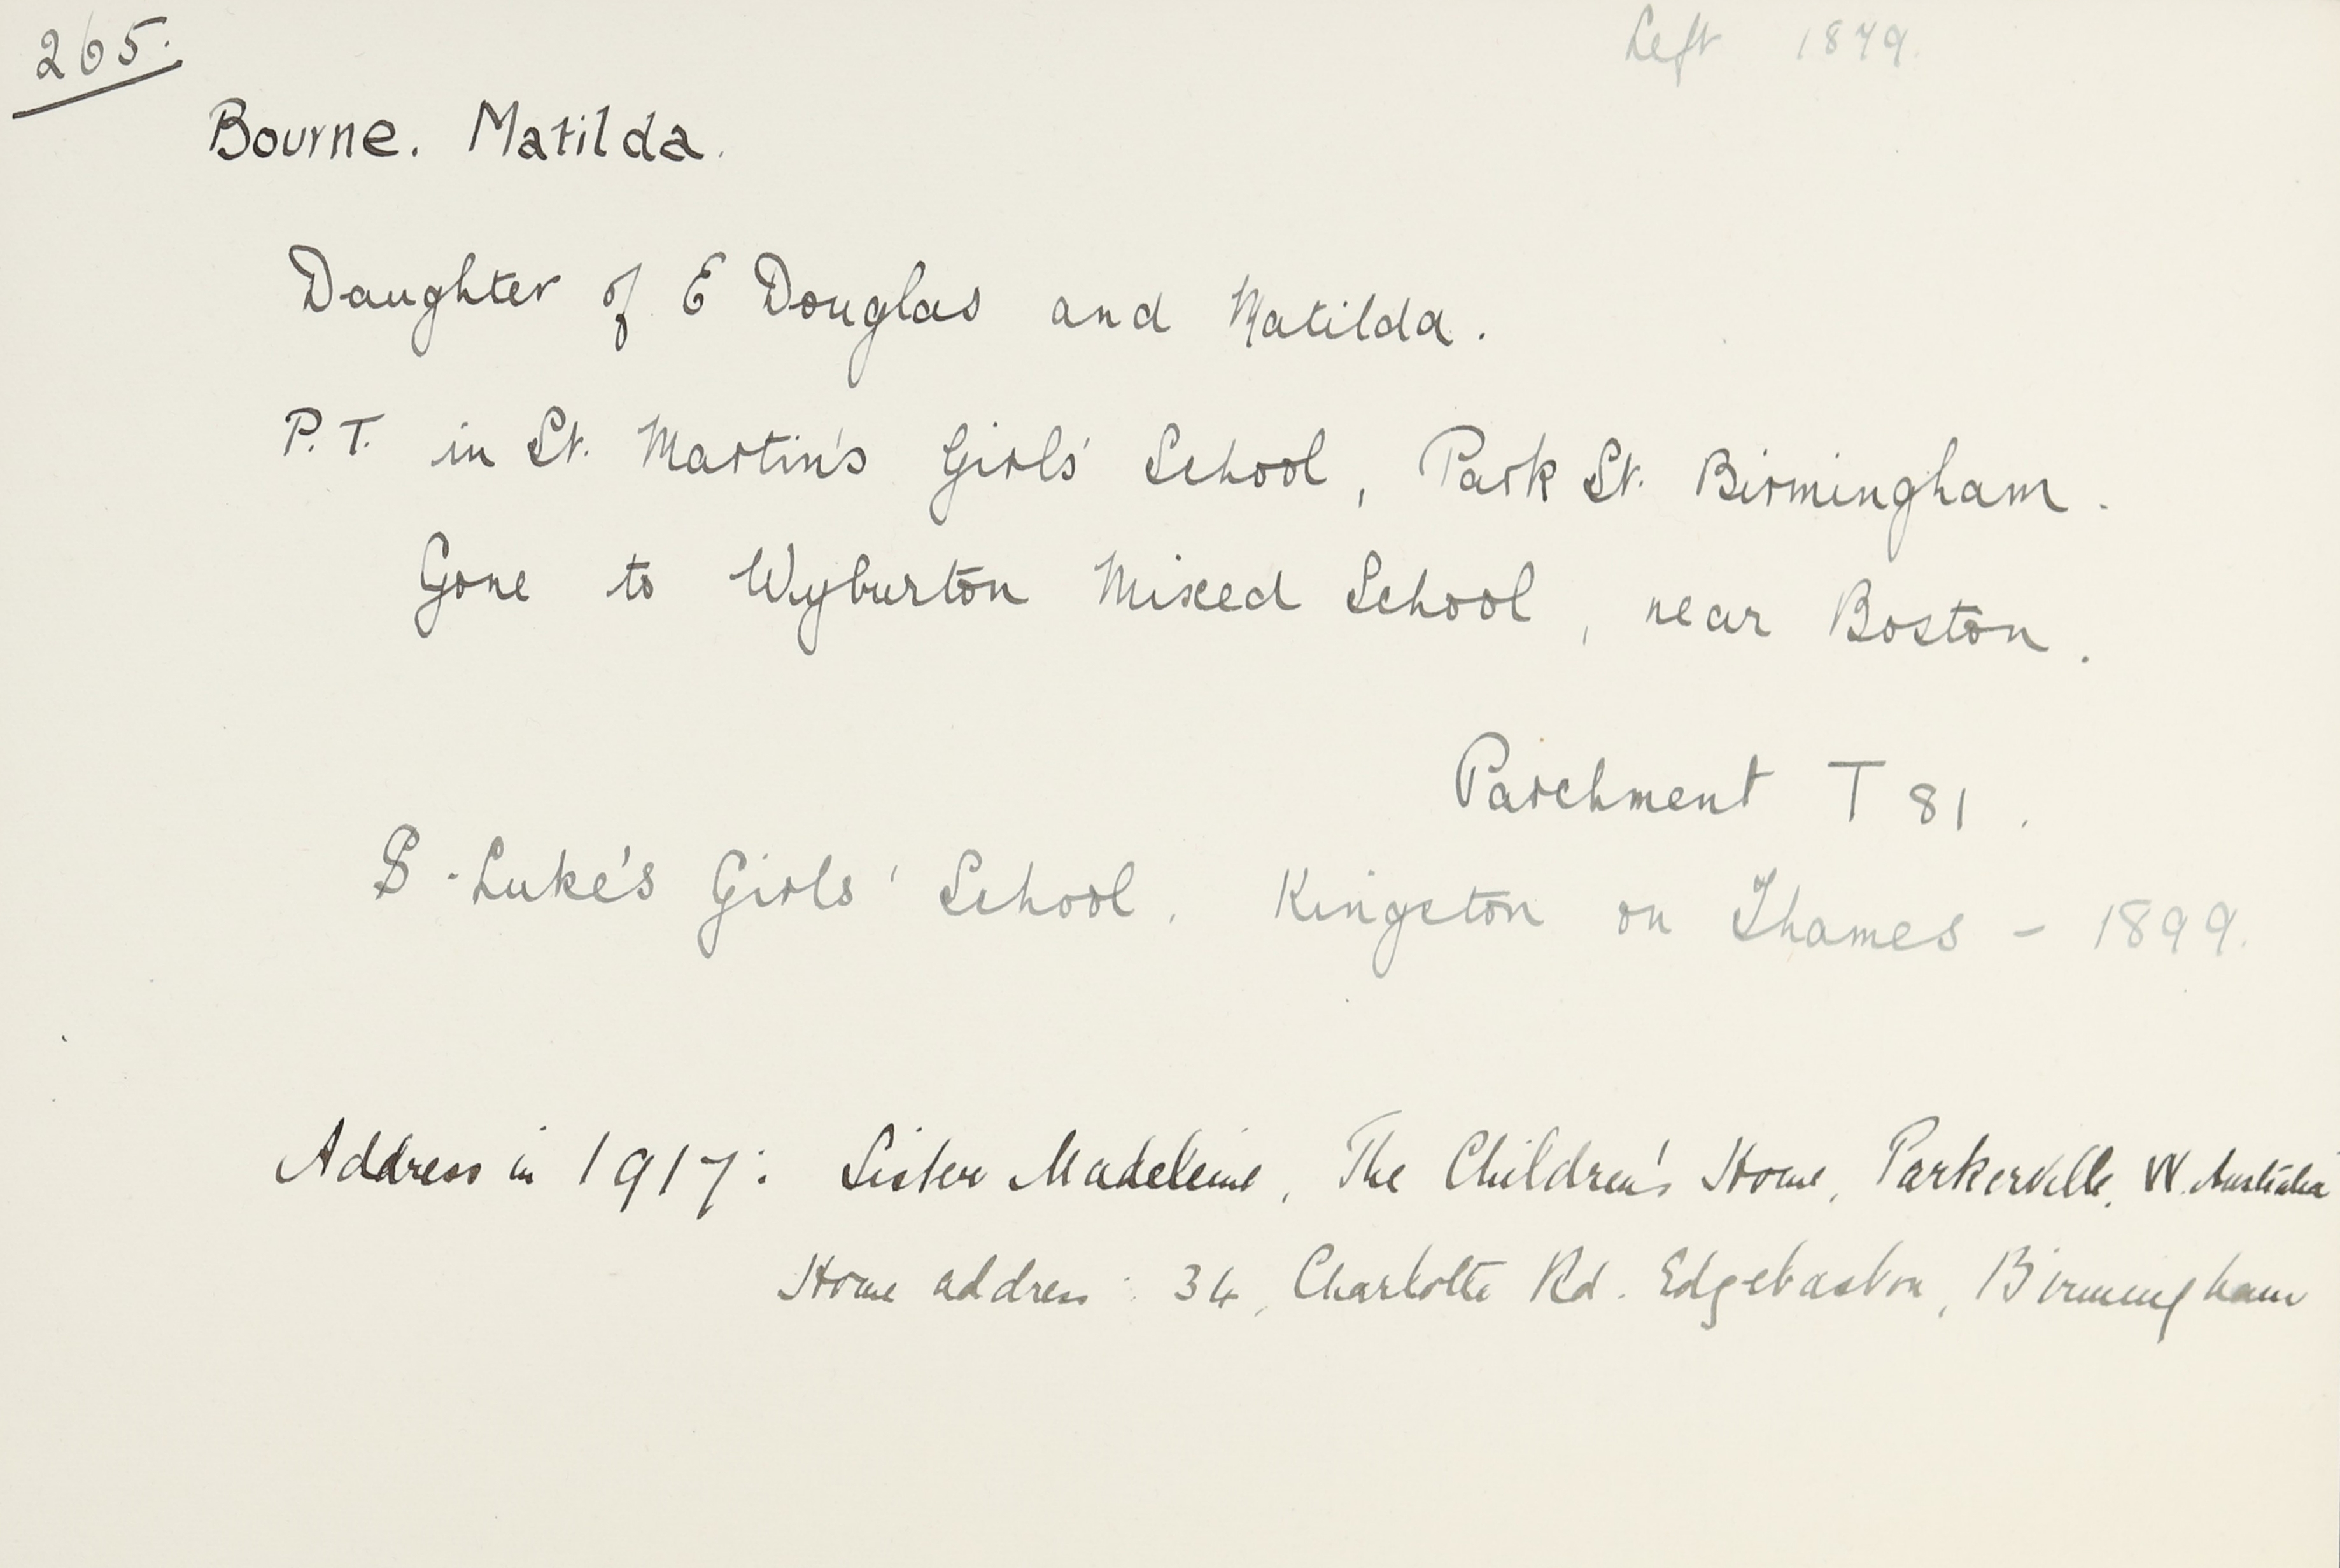 265.
Left 1879.
Bourne. Matilda.
Daughter of E Douglas and Matilda.
P.T. in St. Martin's Girls' School, Park St. Birmingham.
Gone to Wyburton Mixed School, near Boston.
Parchment T 81.
S. Luke's Girls' School. Kingston on Thames - 1899.
Address in 1917: Sister Madeleine, The Children's Home, Parkerville, W. Australia
Home address: 34, Charlotte Rd. Edgebaston, Birmingham